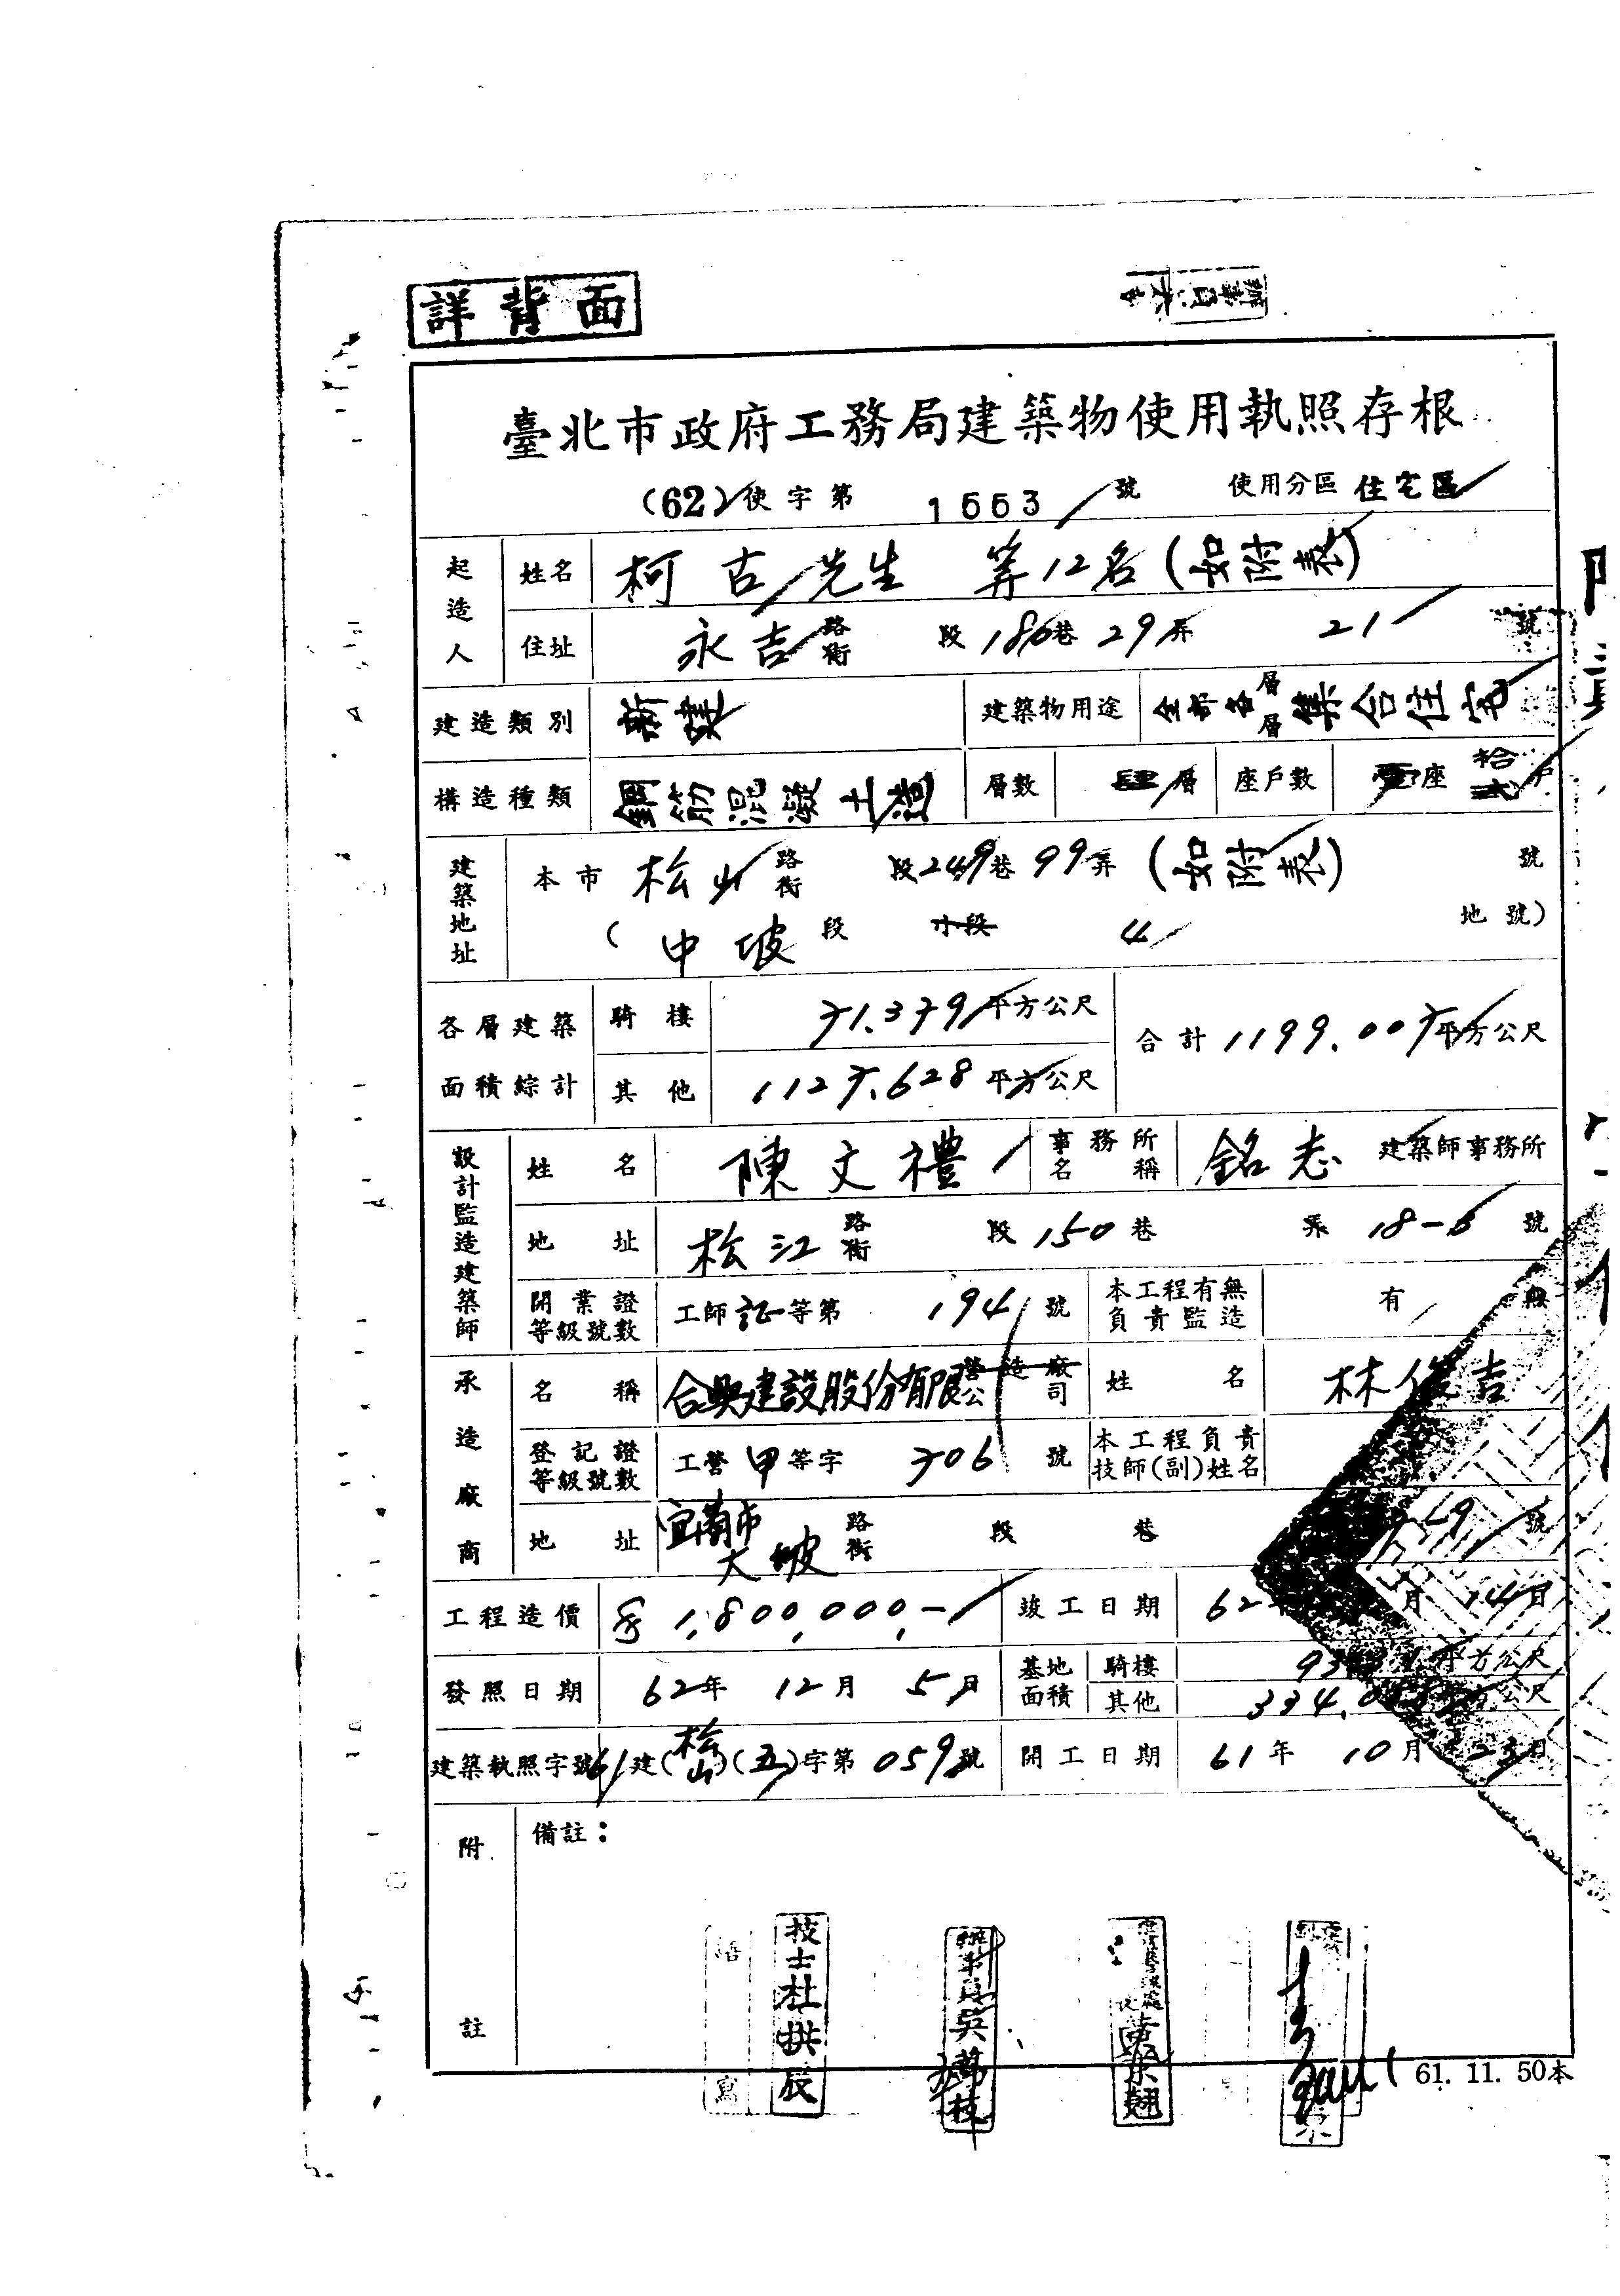 詳背面
臺北市政府工務局建築物使用執照存根
(62)使字第 1553 號 使用分區 住宅區
起造人 姓名 柯古先生 等12名(如附表)
住址 永吉 路街 段 180巷 29弄 21 號
建造類別 新建 建築物用途 全部各層層 集合住宅
構造種類 鋼筋混凝土造 層數 肆層 座戶數 壹座 拾貳戶
建築地址 本市 松山 路街 段249巷 99弄 (如附表) 號
( 中坡 段 小段 4 地號)
各層建築面積綜計 騎樓 71.379平方公尺 合計1199.007平方公尺
其他 1127.628平方公尺
設計監造建築師 姓名 陳文禮 事務所名稱 銘志 建築師事務所
地址 松江 路街 段 150 巷 弄 號
開業證等級號數 工師証等第 194 號 本工程有無負責監造 有 無
承造廠商 名稱 合興建設股份有限 營造廠公司 姓名 林俊吉
登記證等級號數 工營甲等字 706 號 本工程負責技師(副)姓名
地址 宜蘭市 大坡 路街 段 巷 號
工程造價 1,800,000.- 竣工日期 62 月 14日
發照日期 62年 12月 5日 基地面積 騎樓 平方公尺
其他 平方公尺
建築執照字號 61建(松山)(五)字第059號 開工日期 61年 10月 日
附註 備註:
技士杜拱辰
61. 11. 50本